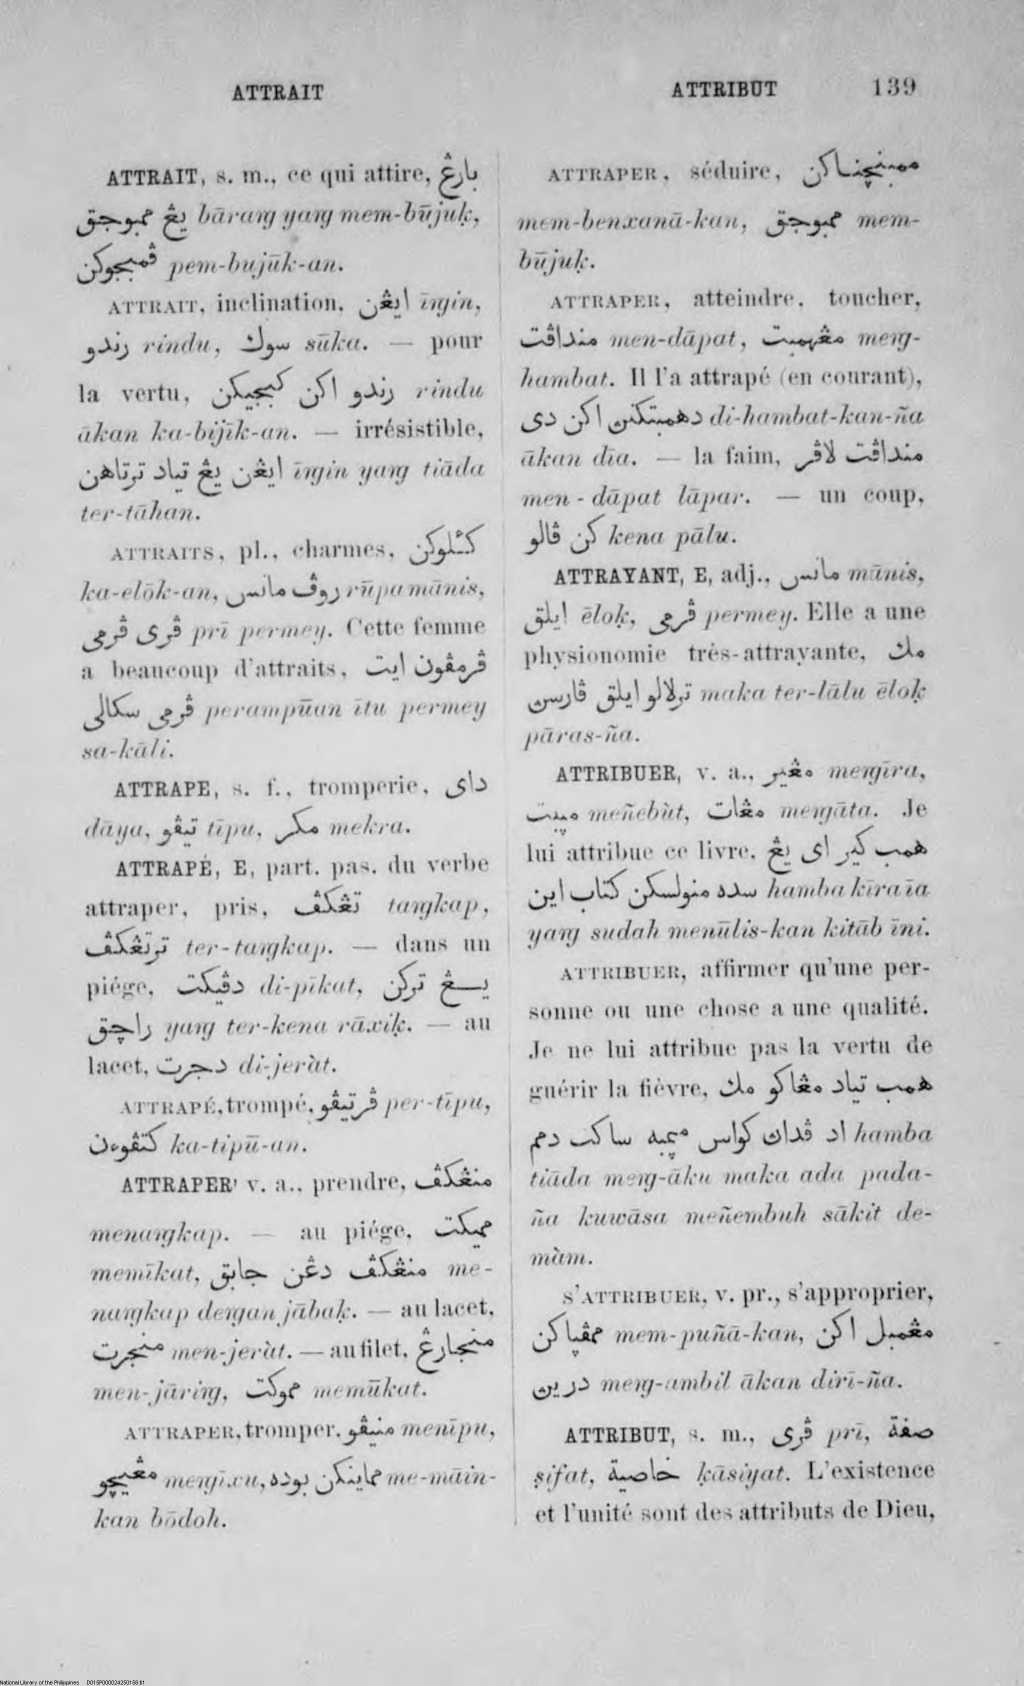 ATTRAIT
ATTRIBUT 139
ATTRAIT, s. m., ce qui attire, بارڠ
يڠ ممبوجق bārang yang mem-būjuḳ,
ڤمبجوكن pem-bujūk-an.
ATTRAIT, inclination, ايڠن īngin,
رندو rindu, سوك sūka. — pour
la vertu, رندو اكن كبجيكن rindu
ākan ka-bijīk-an. — irrésistible,
ايڠن يڠ تياد ترتاهن īngin yang tiāda
ter-tāhan.
ATTRAITS, pl., charmes,
ka-elōk-an, روڤ مانس rūpa mānis,
ڤرى ڤرمي prī permey. Cette femme
a beaucoup d'attraits, ڤرمڤون ايت
ڤرمي سكالى perampūan ītu permey
sa-kāli.
ATTRAPE, s. f., tromperie, داى
dāya, تيڤو tīpu, مكر mekra.
ATTRAPÉ, E, part. pas. du verbe
attraper, pris, تڠكڤ tangkap,
ترتڠكڤ ter-tangkap. — dans un
piége, دڤيكت di-pīkat, يڠ تركن
راچق yang ter-kena rāxiḳ. — au
lacet, دجرت di-jeràt.
ATTRAPÉ, trompé, ڤرتيڤو per-tīpu,
كتڤوءن ka-tipū-an.
ATTRAPER, v. a., prendre, منڠكڤ
menangkap. — au piége, مميكت
memīkat, منڠكڤ دڠن جابق me-
nangkap dengan jābaḳ. — au lacet,
منجرت men-jeràt. — au filet, منجارڠ
men-jāring, مموكت memūkat.
ATTRAPER, tromper, منيڤو menīpu,
مڠيچو mengīxu, مماينكن بوده me-māin-
kan bōdoh.
ATTRAPER, séduire, ممبنچناكن
mem-benxanā-kan, ممبوجق mem-
būjuḳ.
ATTRAPER, atteindre, toucher,
منداڤت men-dāpat, مڠهمبت meng-
hambat. Il l'a attrapé (en courant),
دهمبتكنن اكن دى di-hambat-kan-ña
ākan dīa. — la faim, منداڤت لاڤر
men-dāpat lāpar. — un coup,
كن ڤالو kena pālu.
ATTRAYANT, E, adj., مانس mānis,
ايلق ēloḳ, ڤرمي permey. Elle a une
physionomie très-attrayante, مك
ترلالو ايلق ڤارسن maka ter-lālu ēloḳ
pāras-ña.
ATTRIBUER, v. a., مڠير mengīra,
meñebùt, مڠات mengāta. Je
lui attribue ce livre, همب كير اى يڠ
سده منولسكن كتاب اين hamba kīra īa
yang sudah menūlis-kan kitāb īni.
ATTRIBUER, affirmer qu'une per-
sonne ou une chose a une qualité.
Je ne lui attribue pas la vertu de
guérir la fièvre, همب تياد مڠاكو مك
اد ڤدان كواس ساكت دمم hamba
tiāda meng-āku maka ada pada-
ña kuwāsa meñembuh sākit de-
màm.
S'ATTRIBUER, v. pr., s'approprier,
mem-puñā-kan, مڠمبل اكن
درين meng-ambil ākan dirī-ña.
ATTRIBUT, s. m., ڤرى prī, صفة
ṣifat, خاصية ḳāsiyat. L'existence
et l'unité sont des attributs de Dieu,
National Library of the Philippines